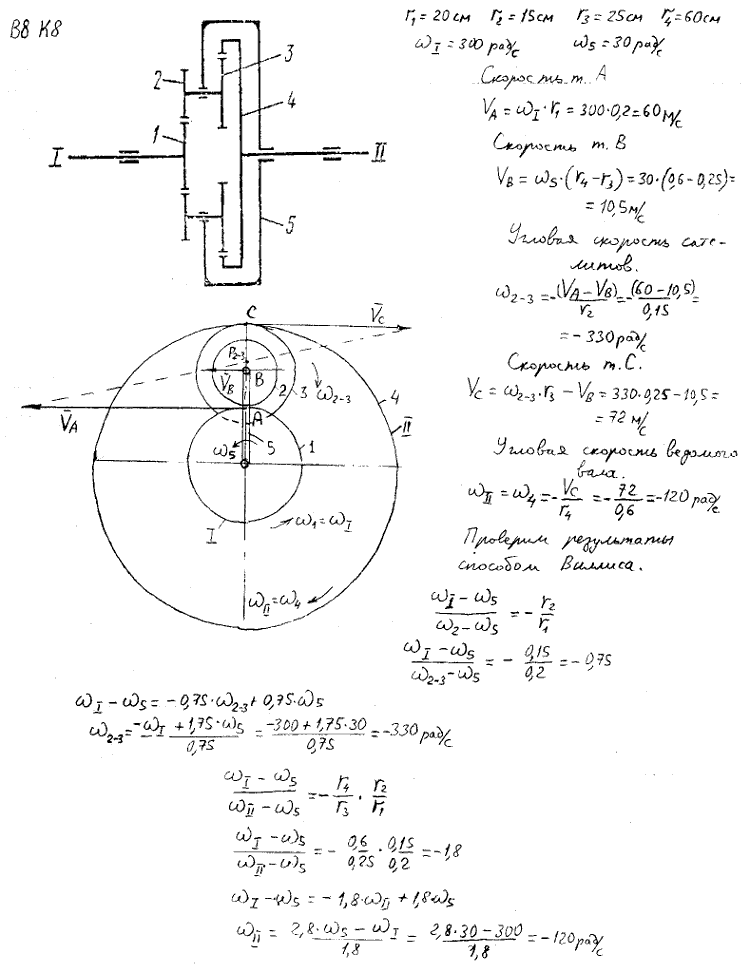 B8 K8
r₁ = 20 см r₂ = 15 см r₃ = 25 см r₄ = 60 см
ω_I = 300 рад/с ω₅ = 30 рад/с
Скорость т. A
V_A = ω_I · r₁ = 300·0,2 = 60 м/с
Скорость т. B
V_B = ω₅ · (r₄ − r₃) = 30·(0,6 − 0,25) =
= 10,5 м/с
Угловая скорость сате-
литов.
ω₂₋₃ = −(V_A − V_B)/r₂ = −(60 − 10,5)/0,15 =
= −330 рад/с
Скорость т. C.
V_C = ω₂₋₃ · r₃ − V_B = 330·0,25 − 10,5 =
= 72 м/с
Угловая скорость ведомого
вала.
ω_II = ω₄ = −V_C/r₄ = −72/0,6 = −120 рад/с
Проверим результаты
способом Виллиса.
(ω_I − ω₅)/(ω₂ − ω₅) = − r₂/r₁
(ω_I − ω₅)/(ω₂₋₃ − ω₅) = − 0,15/0,2 = −0,75
2
3
4
1
I
II
5
C
V̄_C
P₂₋₃
V̄_B
B
2
3
ω₂₋₃
4
II
V̄_A
A
ω₅
5
1
I
ω₁ = ω_I
ω_II = ω₄
ω_I − ω₅ = −0,75·ω₂₋₃ + 0,75·ω₅
ω₂₋₃ = (−ω_I + 1,75·ω₅)/0,75 = (−300 + 1,75·30)/0,75 = −330 рад/с
(ω_I − ω₅)/(ω_II − ω₅) = − r₄/r₃ · r₂/r₁
(ω_I − ω₅)/(ω_II − ω₅) = − 0,6/0,25 · 0,15/0,2 = −1,8
ω_I − ω₅ = −1,8·ω_II + 1,8·ω₅
ω_II = (2,8·ω₅ − ω_I)/1,8 = (2,8·30 − 300)/1,8 = −120 рад/с